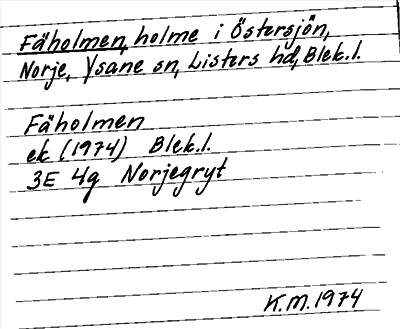 Fäholmen, holme i Östersjön,
Norje, Ysane sn, Listers hd, Blek.l.
Fäholmen
ek (1974) Blek.l.
3E 4g Norjegryt
K.M. 1974